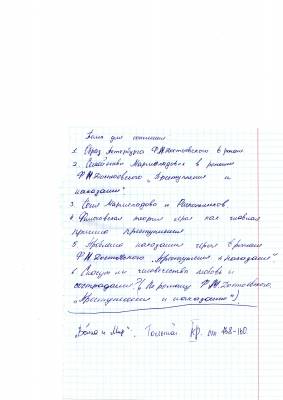 Темы для сочинения
1. Образ Петербурга Ф.М.Достоевского в романе
2. Семейство Мармеладовых в романе
Ф.М.Достоевского „Преступление и
наказание"
3. Соня Мармеладова и Раскольников.
4. Философская теория героя как главная
причина преступления
5. Проблема наказания героя в романе
Ф.М.Достоевского „Преступление и наказание"
6. Спасут ли человечество любовь и
сострадание? (По роману Ф.М.Достоевского
„Преступление и наказание")
„Война и Мир". Толстой.